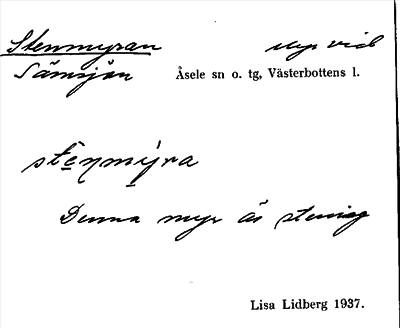 Stenmyran myr vid
Sämsjön Åsele sn o. tg, Västerbottens l.
stenmyra
Denna myr är stenig
Lisa Lidberg 1937.